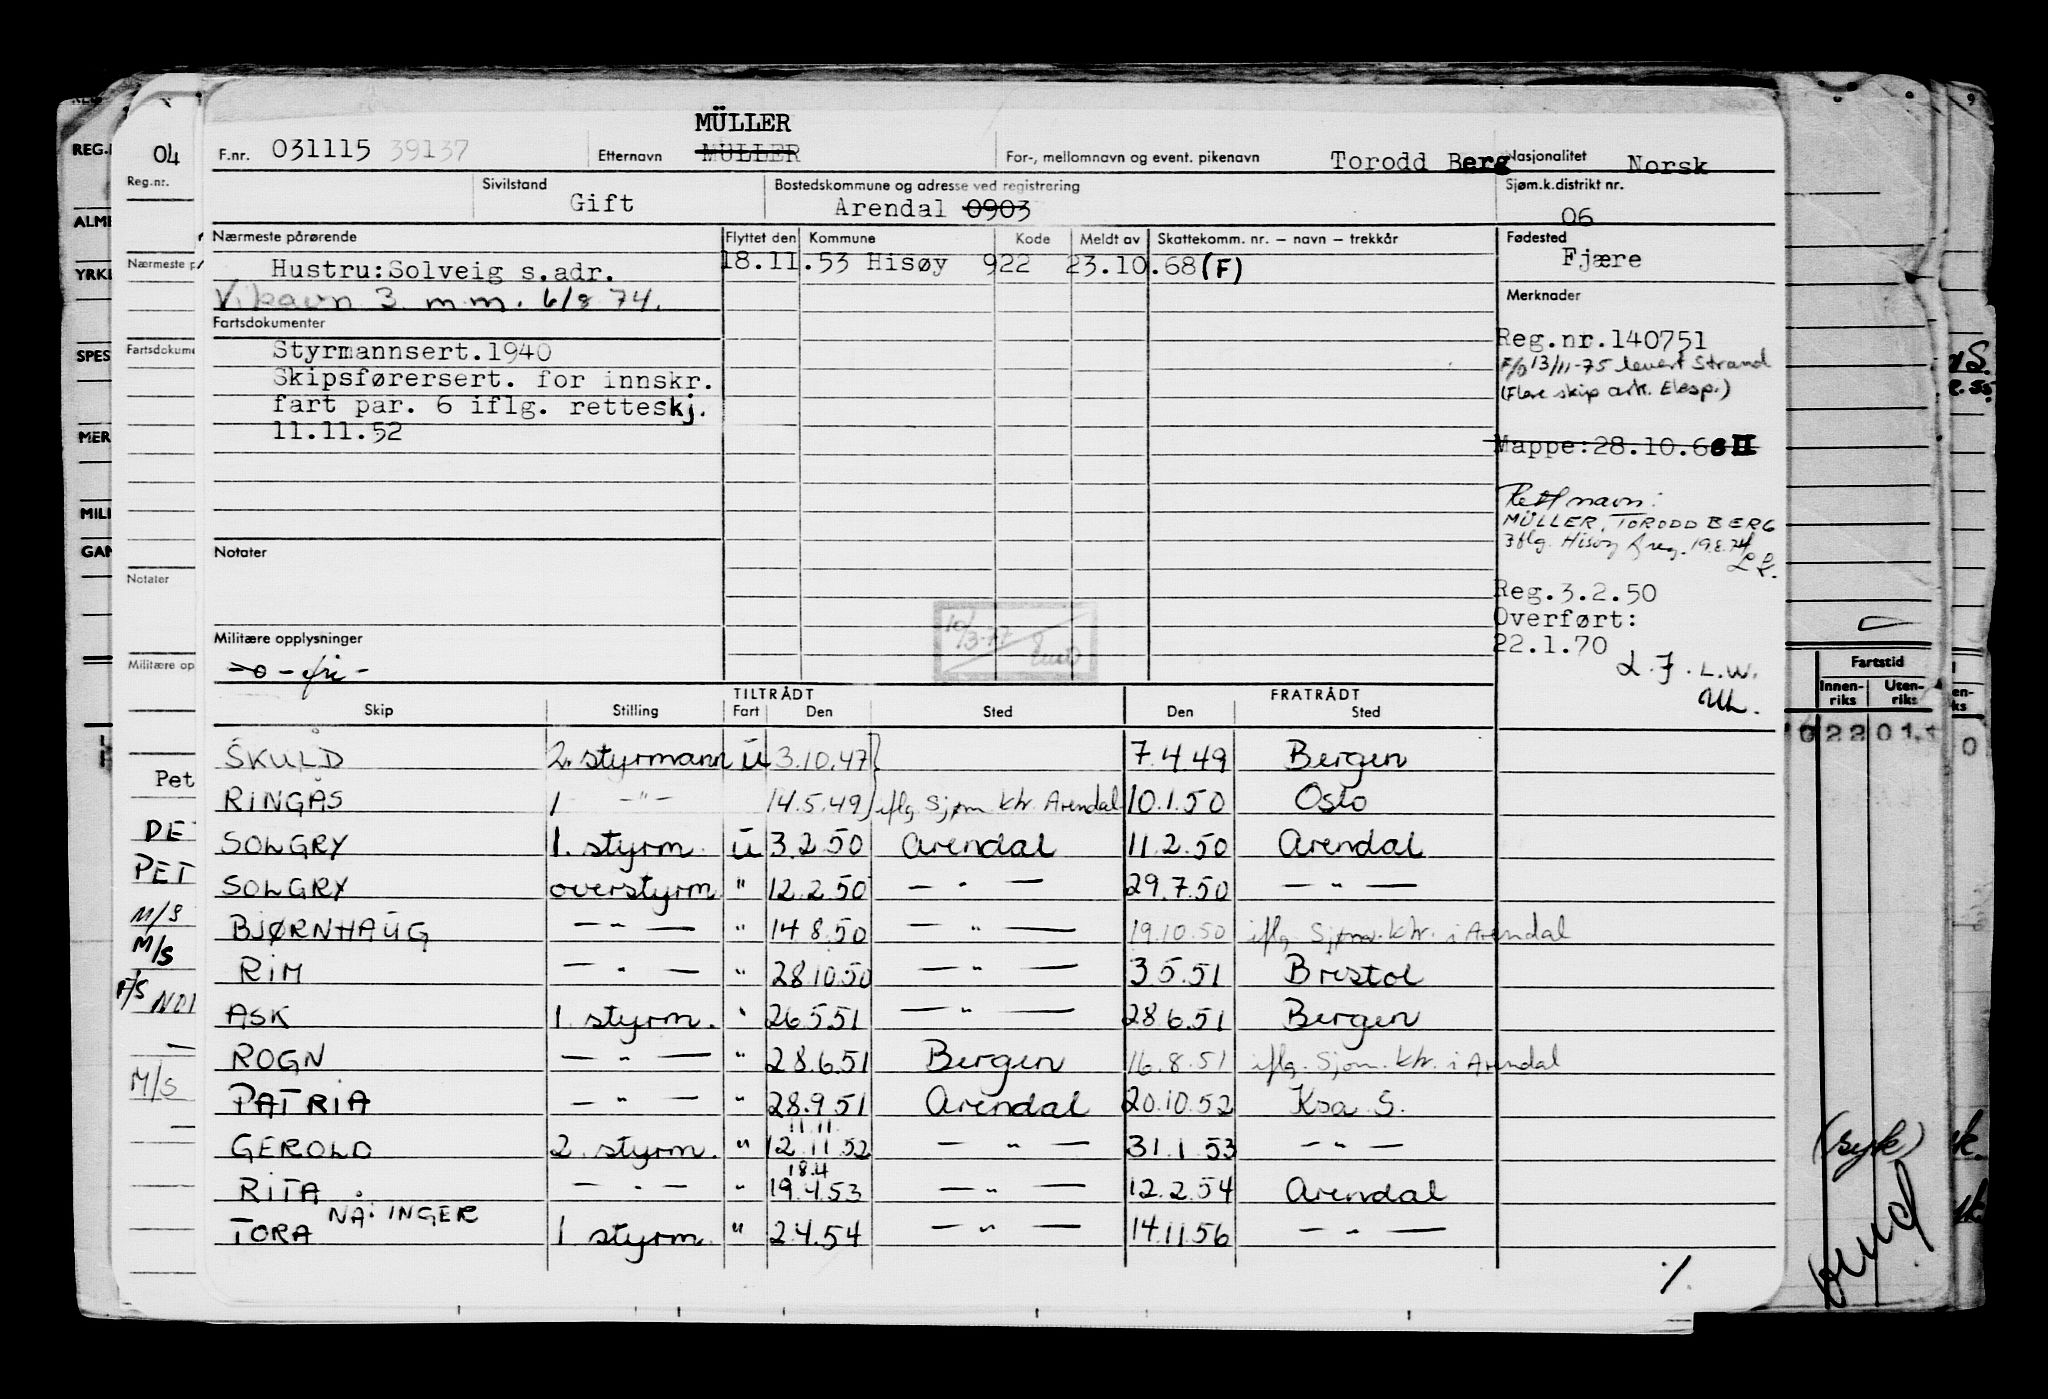 MÜLLER
F.nr. 031115 39137 Etternavn MULLER For-, mellomnavn og event. pikenavn Torodd Berg Nasjonalitet Norsk
Sivilstand Gift Bostedskommune og adresse ved registrering Arendal 0903 Sjøm.k.distrikt nr. 06
Nærmeste pårørende Flyttet den Kommune Kode Meldt av Skattekomm. nr. – navn – trekkår Fødested
Hustru: Solveig s.adr. 18.11.53 Hisøy 922 23.10.68 (F) Fjære
Vikavn 3 m.m. 6/8 74.
Merknader
Fartsdokumenter
Reg.nr.140751
Styrmannsert.1940
F/o 13/11-75 levert Strand
Skipsførersert. for innskr.
(Flere skip ark. Eksp.)
fart par. 6 iflg. retteskj.
11.11.52
Mappe:28.10.68 II
Rett navn:
MÜLLER, TORODD BERG
iflg. Hisøy freg. 19.8.74
Notater
Reg.3.2.50
Overført:
22.1.70
L.F. L.W.
10/3-77
Militære opplysninger
TILTRÅDT FRATRÅDT
Skip Stilling Fart Den Sted Den Sted
SKULD 2. styrmann u 3.10.47 7.4.49 Bergen
RINGÅS 1 — " — 14.5.49 iflg Sjøm. ktr. Arendal 10.1.50 Oslo
SOLGRY 1. styrm. u 3.2.50 Arendal 11.2.50 Arendal
SOLGRY overstyrm. " 12.2.50 — " — 29.7.50 — " —
BJØRNHAUG — " — " 14.8.50 — " — 19.10.50 iflg. Sjøm. ktr. i Arendal
RIM — " — " 28.10.50 — " — 3.5.51 Bristol
ASK 1. styrm. " 26.5.51 — " — 28.6.51 Bergen
ROGN — " — " 28.6.51 Bergen 16.8.51 iflg. Sjøm. ktr. i Arendal
PATRIA — " — " 28.9.51 Arendal 20.10.52 Ksa S.
11.11.
GEROLD 2. styrm. " 12.11.52 — " — 31.1.53 — " —
18.4
RITA — " — " 19.4.53 — " — 12.2.54 Arendal
NÅ: INGER
TORA 1. styrm. " 2.4.54 — " — 14.11.56 — " —
·/.
04
Reg.nr.
Nærmeste p
Fartsdokume
Notater
Militære op
Pet
DE
PET
M/S
M/S
F/S
M/S
REG.
ALM
YRK
SPES
MER
MILI
GAN
Fartstid
Innen-riks Uten-riks
(syk)